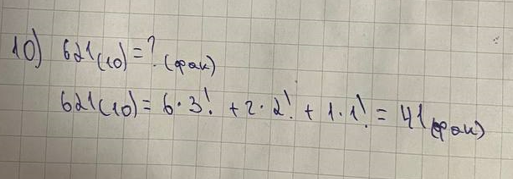 10) 621(10) = ? (фак)
621(10) = 6·3! + 2·2! + 1·1! = 41(фак)